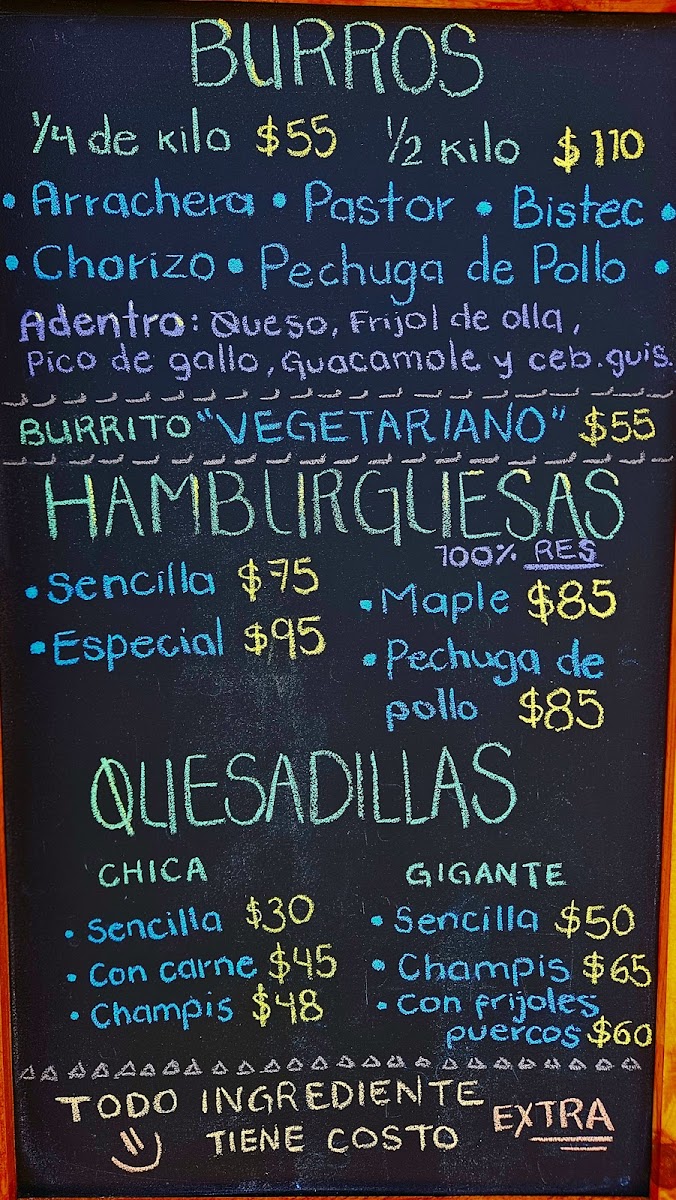 BURROS
1/4 de kilo $55 1/2 kilo $110
• Arrachera • Pastor • Bistec •
• Chorizo • Pechuga de Pollo •
Adentro: Queso, Frijol de olla,
Pico de gallo, guacamole y ceb.guis.
BURRITO "VEGETARIANO" $55
HAMBURGUESAS
100% RES
• Sencilla $75
• Especial $95
• Maple $85
• Pechuga de
pollo $85
QUESADILLAS
CHICA
• Sencilla $30
• Con carne $45
• Champis $48
GIGANTE
• Sencilla $50
• Champis $65
• Con frijoles
puercos $60
TODO INGREDIENTE EXTRA
TIENE COSTO